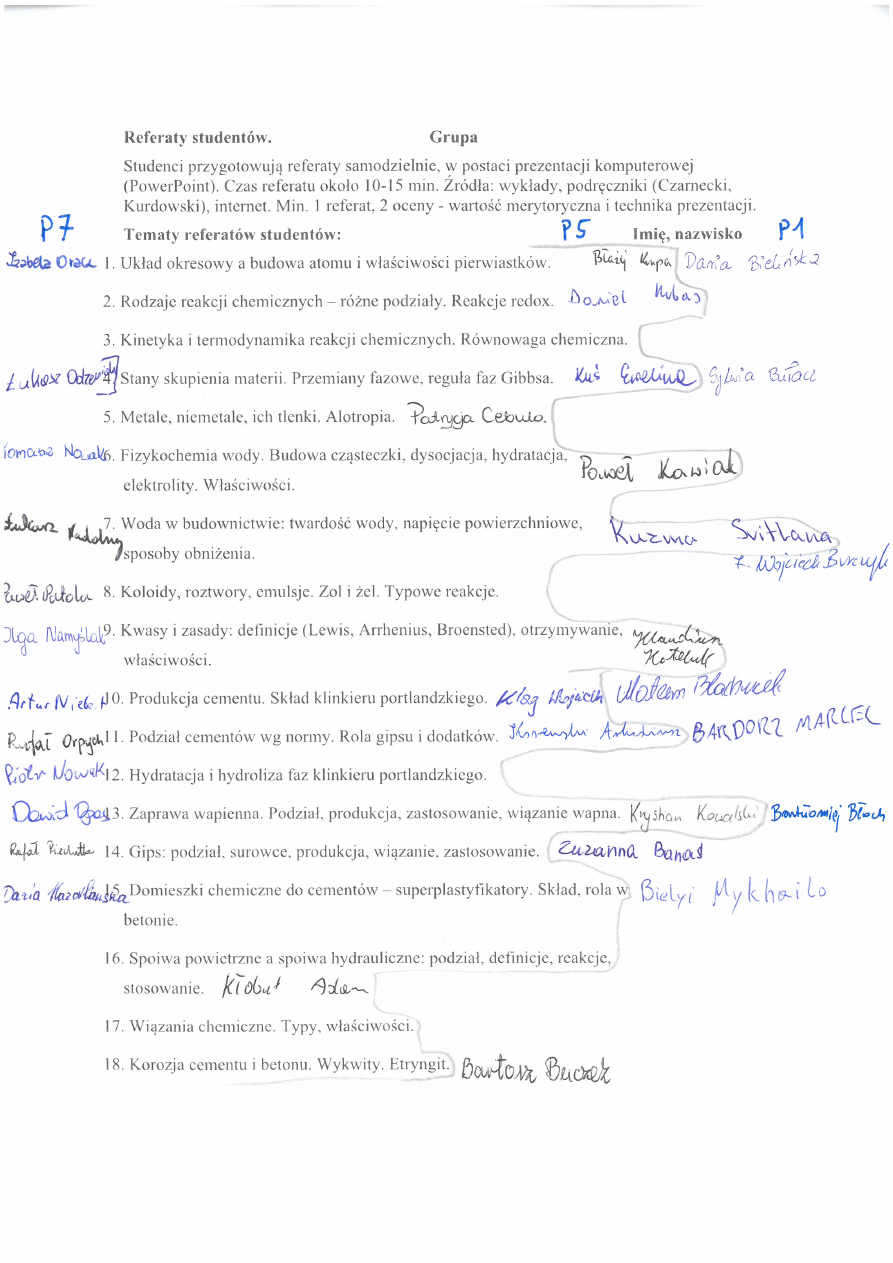 Referaty studentów. Grupa
Studenci przygotowują referaty samodzielnie, w postaci prezentacji komputerowej
(PowerPoint). Czas referatu około 10-15 min. Źródła: wykłady, podręczniki (Czarnecki,
Kurdowski), internet. Min. 1 referat, 2 oceny - wartość merytoryczna i technika prezentacji.
P7 Tematy referatów studentów: P5 Imię, nazwisko P1
Izabela Oracz 1. Układ okresowy a budowa atomu i właściwości pierwiastków. Błażej Krupa Daria Bielińska
2. Rodzaje reakcji chemicznych – różne podziały. Reakcje redox. Daniel Kubas
3. Kinetyka i termodynamika reakcji chemicznych. Równowaga chemiczna.
Łukasz 4. Stany skupienia materii. Przemiany fazowe, reguła faz Gibbsa. Kuś Ewelina Sylwia Bułacz
5. Metale, niemetale, ich tlenki. Alotropia. Patrycja Cebula.
Tomasz Nowak 6. Fizykochemia wody. Budowa cząsteczki, dysocjacja, hydratacja, Paweł Kawiak
elektrolity. Właściwości.
Łukasz Nadolny 7. Woda w budownictwie: twardość wody, napięcie powierzchniowe, Kuzma Svitlana
sposoby obniżenia. 7. Wojciech Burczyk
Paweł 8. Koloidy, roztwory, emulsje. Zol i żel. Typowe reakcje.
Olga Namyślak 9. Kwasy i zasady: definicje (Lewis, Arrhenius, Broensted), otrzymywanie, Klaudiusz
właściwości. Koteluk
Artur 10. Produkcja cementu. Skład klinkieru portlandzkiego. Kłąg Wojciech Mateusz
Rafał Orpych 11. Podział cementów wg normy. Rola gipsu i dodatków. BARDORZ MARCEL
Piotr Nowak 12. Hydratacja i hydroliza faz klinkieru portlandzkiego.
Dawid 13. Zaprawa wapienna. Podział, produkcja, zastosowanie, wiązanie wapna. Krystian Kowalski Bartłomiej Błoch
Rafał Piechotta 14. Gips: podział, surowce, produkcja, wiązanie, zastosowanie. Zuzanna Banaś
Daria 15. Domieszki chemiczne do cementów – superplastyfikatory. Skład, rola w Bielyi Mykhailo
betonie.
16. Spoiwa powietrzne a spoiwa hydrauliczne: podział, definicje, reakcje,
stosowanie. Kłobut Adam
17. Wiązania chemiczne. Typy, właściwości.
18. Korozja cementu i betonu. Wykwity. Etryngit. Bartosz Buczek